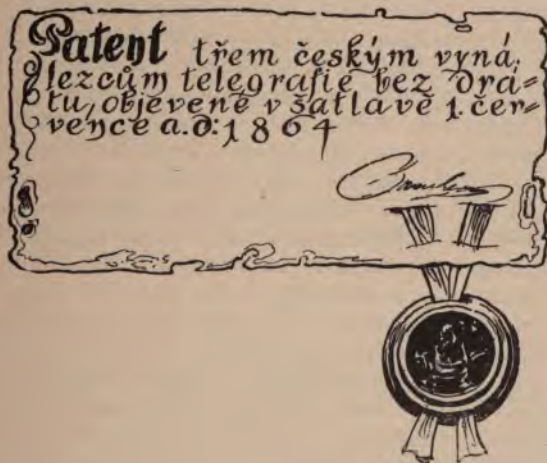 Patent třem českým vyná-
lezcům telegrafie bez drá-
tu, objevené v šatlavě 1. čer-
vence a.d: 1864